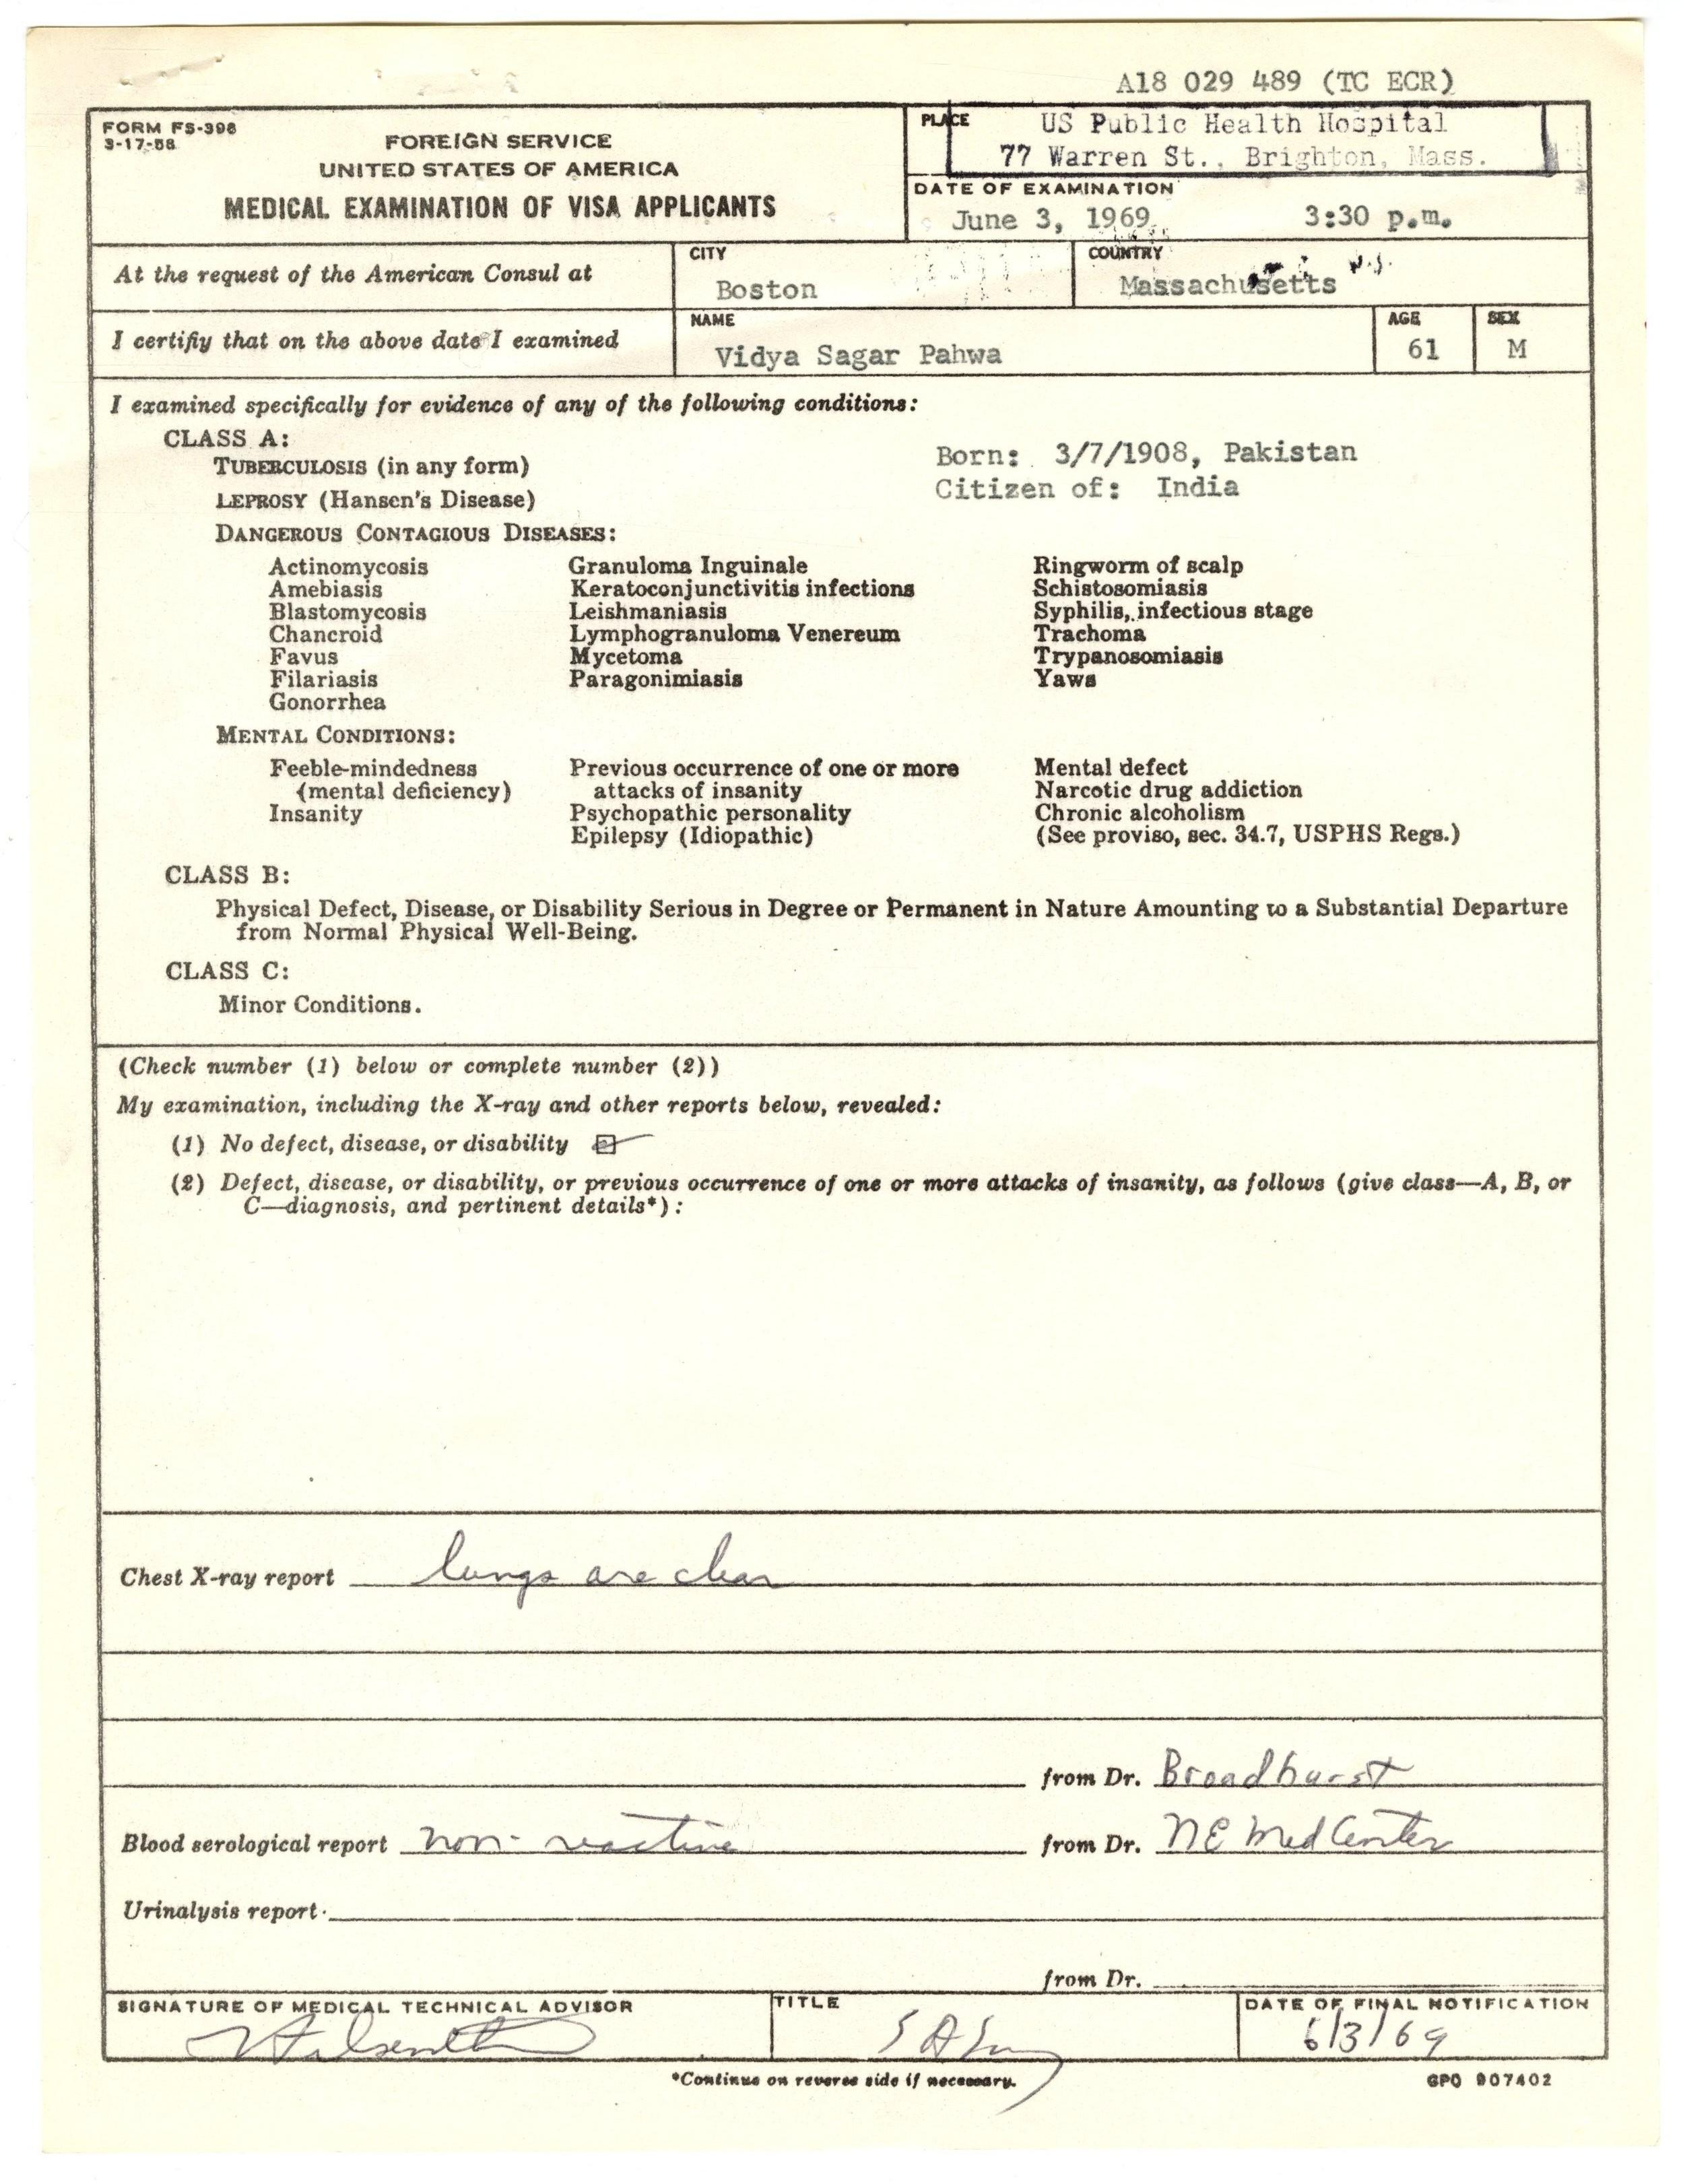 A18 029 489 (TC ECR)
FORM FS-398
3-17-58
FOREIGN SERVICE
UNITED STATES OF AMERICA
MEDICAL EXAMINATION OF VISA APPLICANTS
PLACE
US Public Health Hospital
77 Warren St., Brighton, Mass.
DATE OF EXAMINATION
June 3, 1969 3:30 p.m.
At the request of the American Consul at
CITY
Boston
COUNTRY
Massachusetts
I certifiy that on the above date I examined
NAME
Vidya Sagar Pahwa
AGE
61
SEX
M
I examined specifically for evidence of any of the following conditions:
CLASS A:
TUBERCULOSIS (in any form)
LEPROSY (Hansen's Disease)
Born: 3/7/1908, Pakistan
Citizen of: India
DANGEROUS CONTAGIOUS DISEASES:
Actinomycosis Granuloma Inguinale Ringworm of scalp
Amebiasis Keratoconjunctivitis infections Schistosomiasis
Blastomycosis Leishmaniasis Syphilis, infectious stage
Chancroid Lymphogranuloma Venereum Trachoma
Favus Mycetoma Trypanosomiasis
Filariasis Paragonimiasis Yaws
Gonorrhea
MENTAL CONDITIONS:
Feeble-mindedness Previous occurrence of one or more Mental defect
(mental deficiency) attacks of insanity Narcotic drug addiction
Insanity Psychopathic personality Chronic alcoholism
Epilepsy (Idiopathic) (See proviso, sec. 34.7, USPHS Regs.)
CLASS B:
Physical Defect, Disease, or Disability Serious in Degree or Permanent in Nature Amounting to a Substantial Departure
from Normal Physical Well-Being.
CLASS C:
Minor Conditions.
(Check number (1) below or complete number (2))
My examination, including the X-ray and other reports below, revealed:
(1) No defect, disease, or disability
(2) Defect, disease, or disability, or previous occurrence of one or more attacks of insanity, as follows (give class—A, B, or
C—diagnosis, and pertinent details*):
Chest X-ray report lungs are clear
from Dr. Broadhurst
Blood serological report non-reactive from Dr. NE Med Center
Urinalysis report
from Dr.
SIGNATURE OF MEDICAL TECHNICAL ADVISOR
TITLE
DATE OF FINAL NOTIFICATION
6/3/69
*Continue on reverse side if necessary.
GPO 907402